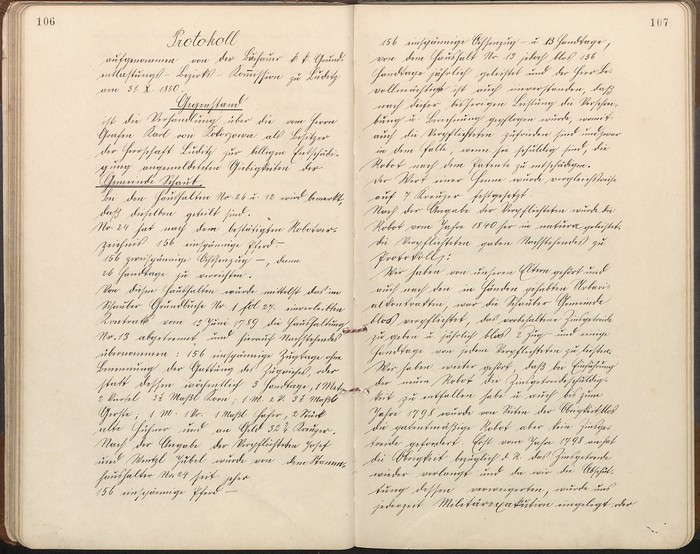 106
Protokoll
aufgenommen von der Buchauer k. k. Grund-
entlastungs-Bezirks-Kommission zu Luditz
am 31. X 1850.
Gegenstand
ist die Verhandlung über die vom Herrn
Grafen Karl von Kokorzowa als Besitzer
der Herrschaft Luditz zur billigen Entschädi-
gung angemeldeten Giebigkeiten der
Gemeinde Schaub.
Bei den Haushalten No 26 u. 12 wird bemerkt,
daß dieselben geteilt sind.
No 24 hat nach dem bestätigten Robotver-
zeichnis 156 einspännige Pferd-
156 zweispännige Ochsenzug-, dann
26 Handtage zu verrichten.
Von diesen Haushalten wurde mittelst des im
Schauber Grundbuche No 1 fol 27. einverleibten
Kontrakt vom 13 Juni 1789 die Haushaltung
No. 13 abgetrennt und hierauf Nachstehendes
übernommen: 156 einspännige Zugtage ohne
Benennung der Gattung des Zugviehes, oder
statt dessen wöchentlich 3 Handtage, 1 Metz
2 Viertel 3½ Maßl Korn; 1 M. 2 V. 3½ Maßl
Gerste; 1 M. 1 Vr. 1 Maßl Hafer, 2 Stück
alte Hühner und an Geld 32¾ Kreuzer.
Nach der Angabe der Verpflichteten Josef
und Wenzl Zubel wurde von dem Stamm-
haushalter No 24 seit jeher
156 einspännige Pferd-
107
156 einspännige Ochsenzug- u 13 Handtage,
von dem Haushalt No 13 jedoch blos 156
Handtage jährlich geleistet und der Herr Be-
vollmächtigte ist auch einverstanden, daß
nach dieser bisherigen Leistung die
und Berechnung gepflogen werde, womit
auch die Verpflichteten zufrieden sind und zwar
in dem Falle, wenn sie schuldig sind, die
Robot nach dem Patente zu entschädigen.
Der Wert einer Henne wurde vergleichsweise
auf 7 Kreuzer festgesetzt
Nach der Angabe der Verpflichteten wurde die
Robot vom Jahre 1840 her in natura geleistet.
Die Verpflichteten gaben Nachstehendes zu
Protokoll:
Wir haben von unseren Eltern gehört und
auch nach den in Händen gehabten Notari-
alkontrakten, war die Schauber Gemeinde
blos verpflichtet, das vorbehaltene Zinsgetreide
zu geben u jährlich blos 2 Zug- und einige
Handtage von jedem Verpflichteten zu leisten.
Wir haben weiter gehört, daß bei Einführung
der neuen Robot die Zinsgetreideschuldig-
keit zu entfallen habe u auch bis zum
Jahre 1798 wurde von Seiten der Obrigkeit blos
die patentmäßige Robot aber kein Zinsge-
treide gefordert. Erst vom Jahre 1798 an hat
die Obrigkeit bezüglich d. A. das Zinsgetreide
wieder verlangt und da wir die Abschüt-
tung dessen verweigerten, wurde uns
jederzeit Militärexekution eingelegt der